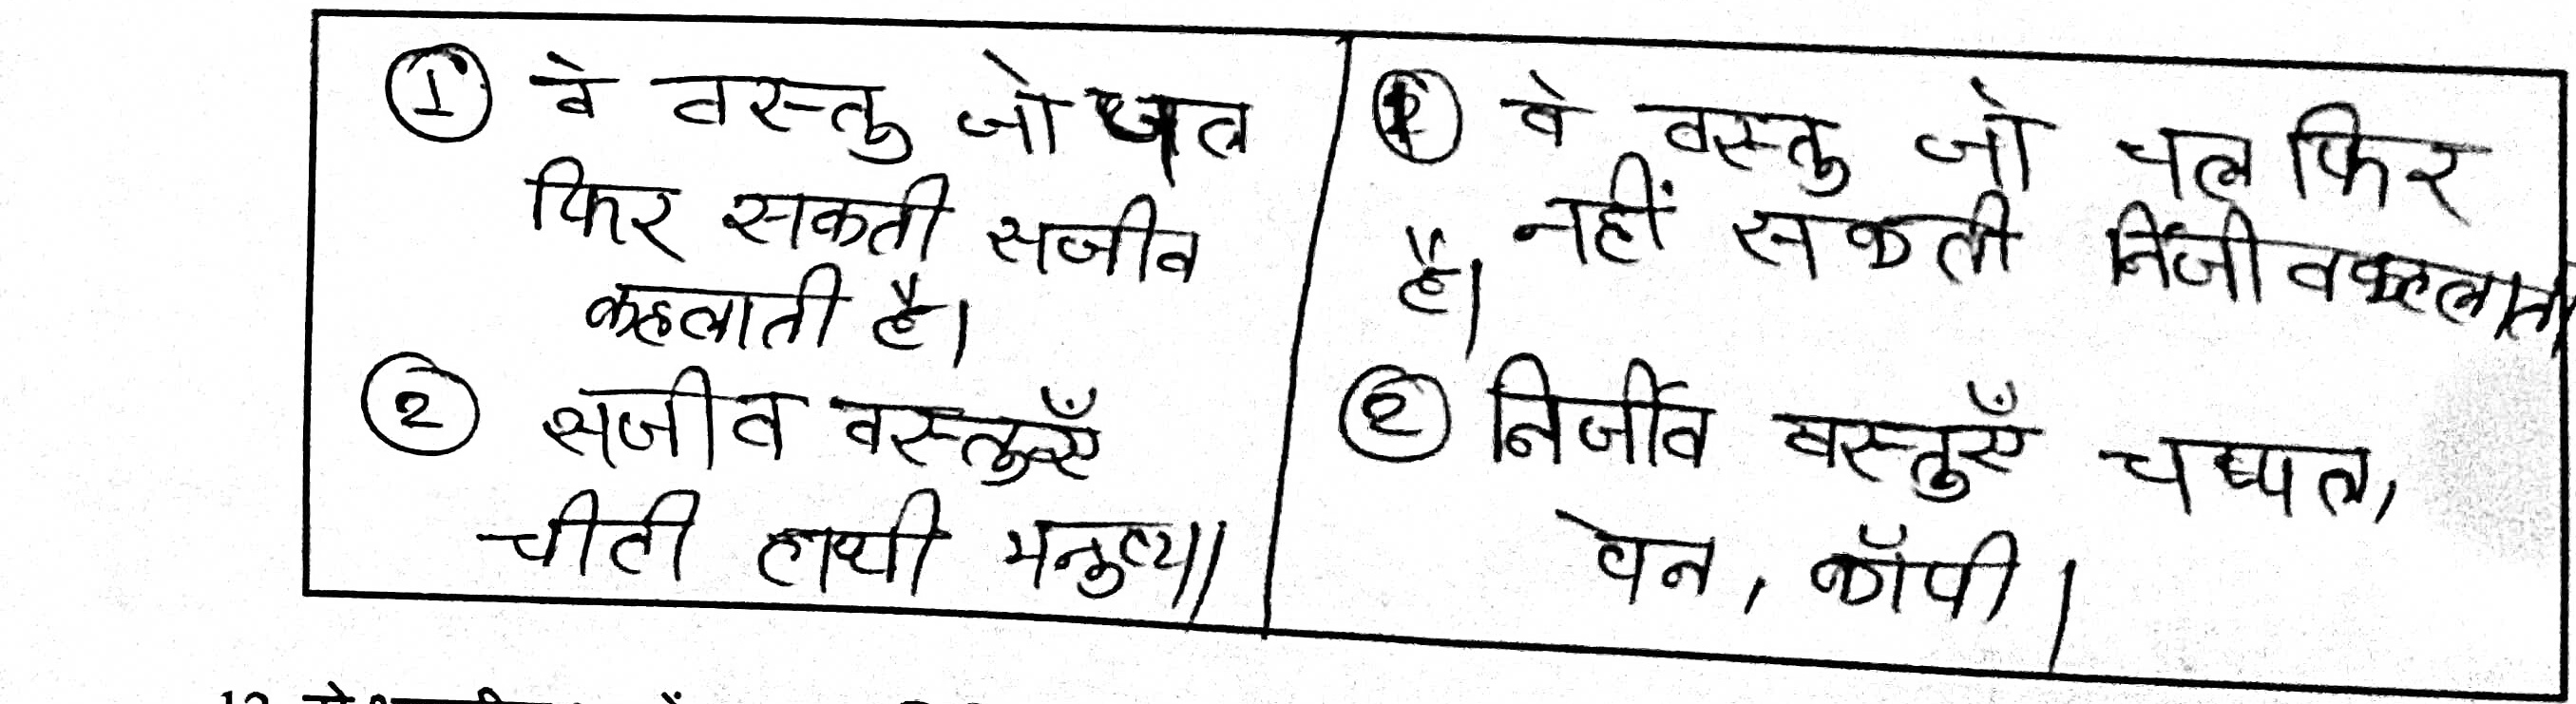 ① वे वस्तु जो चल
फिर सकती सजीव
कहलाती है।
② सजीव वस्तुएँ
चीटी हाथी मनुष्य॥
① वे वस्तु जो चल फिर
नहीं सकती निर्जीव कहलाती
है।
② निर्जीव वस्तुएँ चप्पल,
पेन, कॉपी।